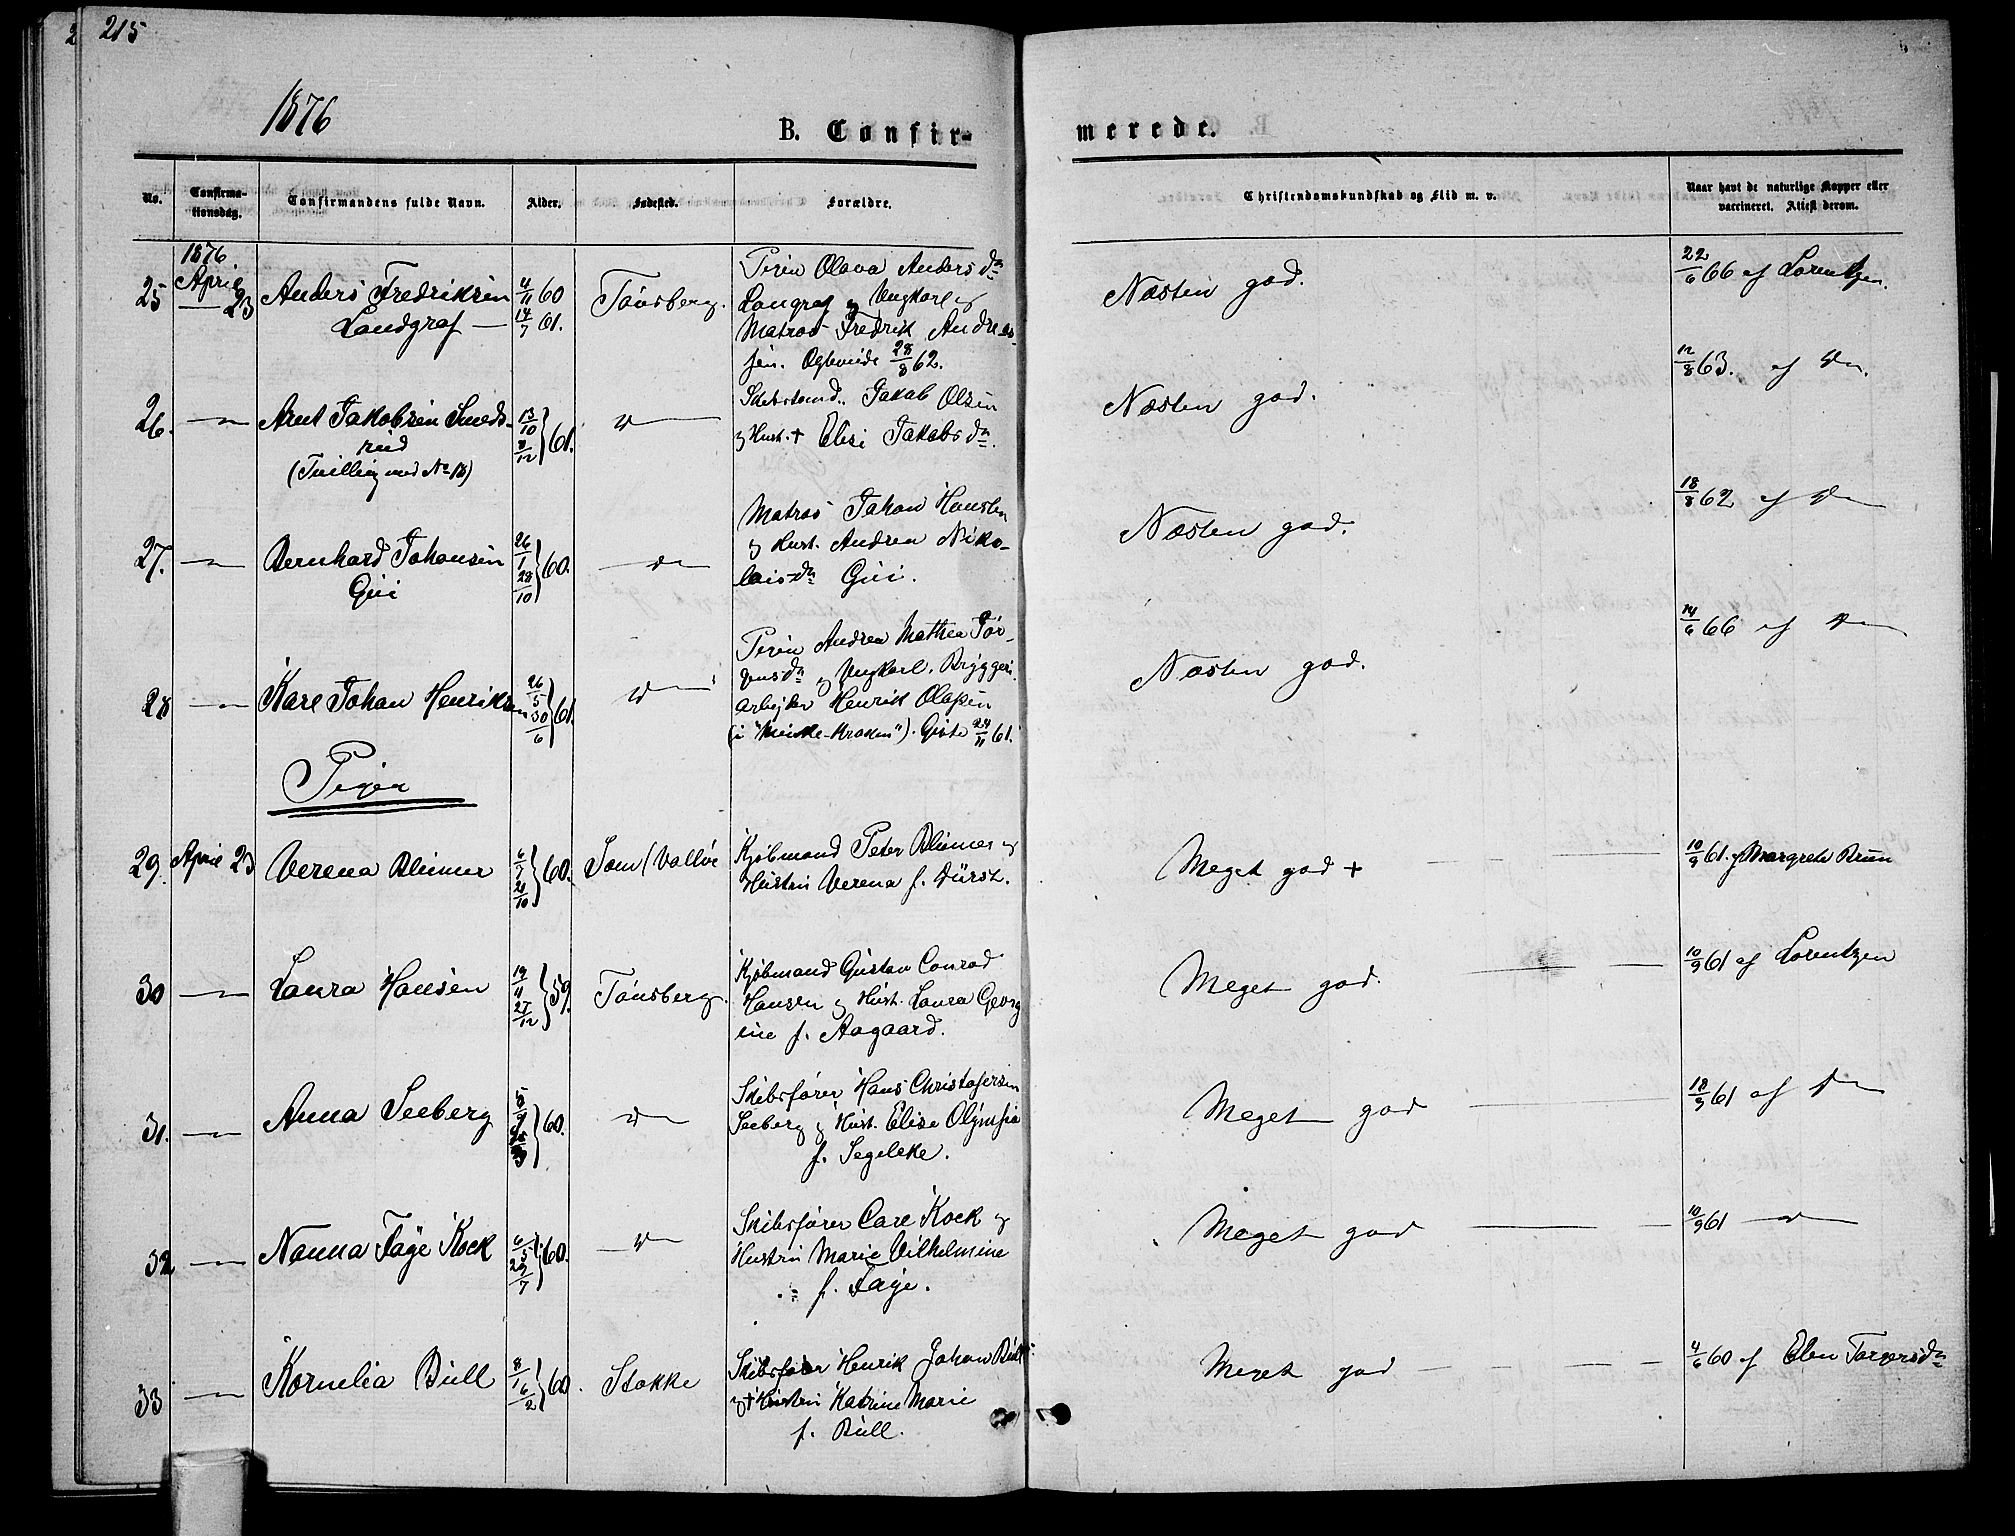 2 215
1876
B. Confir-
merede.
No.
Confirma-
tionsdag.
Confirmandens fulde Navn.
Alder.
Fødested.
Forældre.
Christendomskundskab og Flid m. v.
Naar havt de naturlige Kopper eller
vaccineret. Attest derom.
1876
25 April 23 Anders Fredriksen
Landgraf —
4/11 60
14/7 61.
Tönsberg.
Andersdn
Langraf og Ungkarl og
Matros Fredrik Andrea-
sen. Egteviede 28/8 62.
Næsten god.
22/6 66 af Lorentzen.
26. —"— Arnt Jakobsen Smeds-
rud
(Tvilling med No 18)
13/10
8/12 } 61.
Do
Jakob Olsen
og Hust. + Elisi Jakobsdn.
Næsten god.
12/8 63. af Do.
27. —"— Bernhard Johansen
Gui
26/1
28/10 } 60.
Do
Matros Johan Hansen
og Hust. Andrea Niko-
laisdn Gui.
Næsten god.
18/8 62 af Do
28 —"— Karl Johan Henriksen
26/5
30/6 } 61.
Do
Andrea Mathea Jör-
gensdn og Ungkarl. Bryggeri
arbejder Henrik Olafsen
Givte 24/11 61.
Næsten god.
14/6 66 af Do
Piger
29. April 23 Verena Blumer
6/7
21/10 } 60.
Sem (Vallöe
Kjöbmand Peter Blumer og
Hustru Verena f. Dürst.
Meget god +
10/9 61. af Margrete Bruun
30 —"— Laura Hansen
19/11
27/12 } 59.
Tönsberg.
Kjöbmand Gustav Conrad
Hansen og Hust. Laura Georg
ine f. Aagaard.
Meget god.
10/9 61 af Lorentzen
31. —"— Anna Seeberg
} 60.
Do
Skibsförer Hans Christofersen
Seeberg og Hust. Elise Olÿmpia
f. Segelcke.
Meget god
18/9 61 af Do
32 —"— Nanna Faÿe Kock
6/5
29/7 } 60.
Do
Skibsförer Carl Kock og
Hustru Marie Vilhelmine
f. Faÿe.
Meget god
10/9 61 Do
33 —"— Kornelia Bull
8/1
6/2 } 60.
Stokke
Skibsförer Henrik Johan Bull
og + Hustru Katrine Marie
f. Bull.
Meget god
4/6 60 af Elen Torgersdn